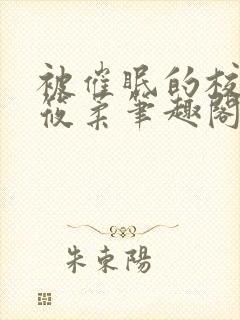 被催眠的校
筱柔笔趣阁
朱東陽